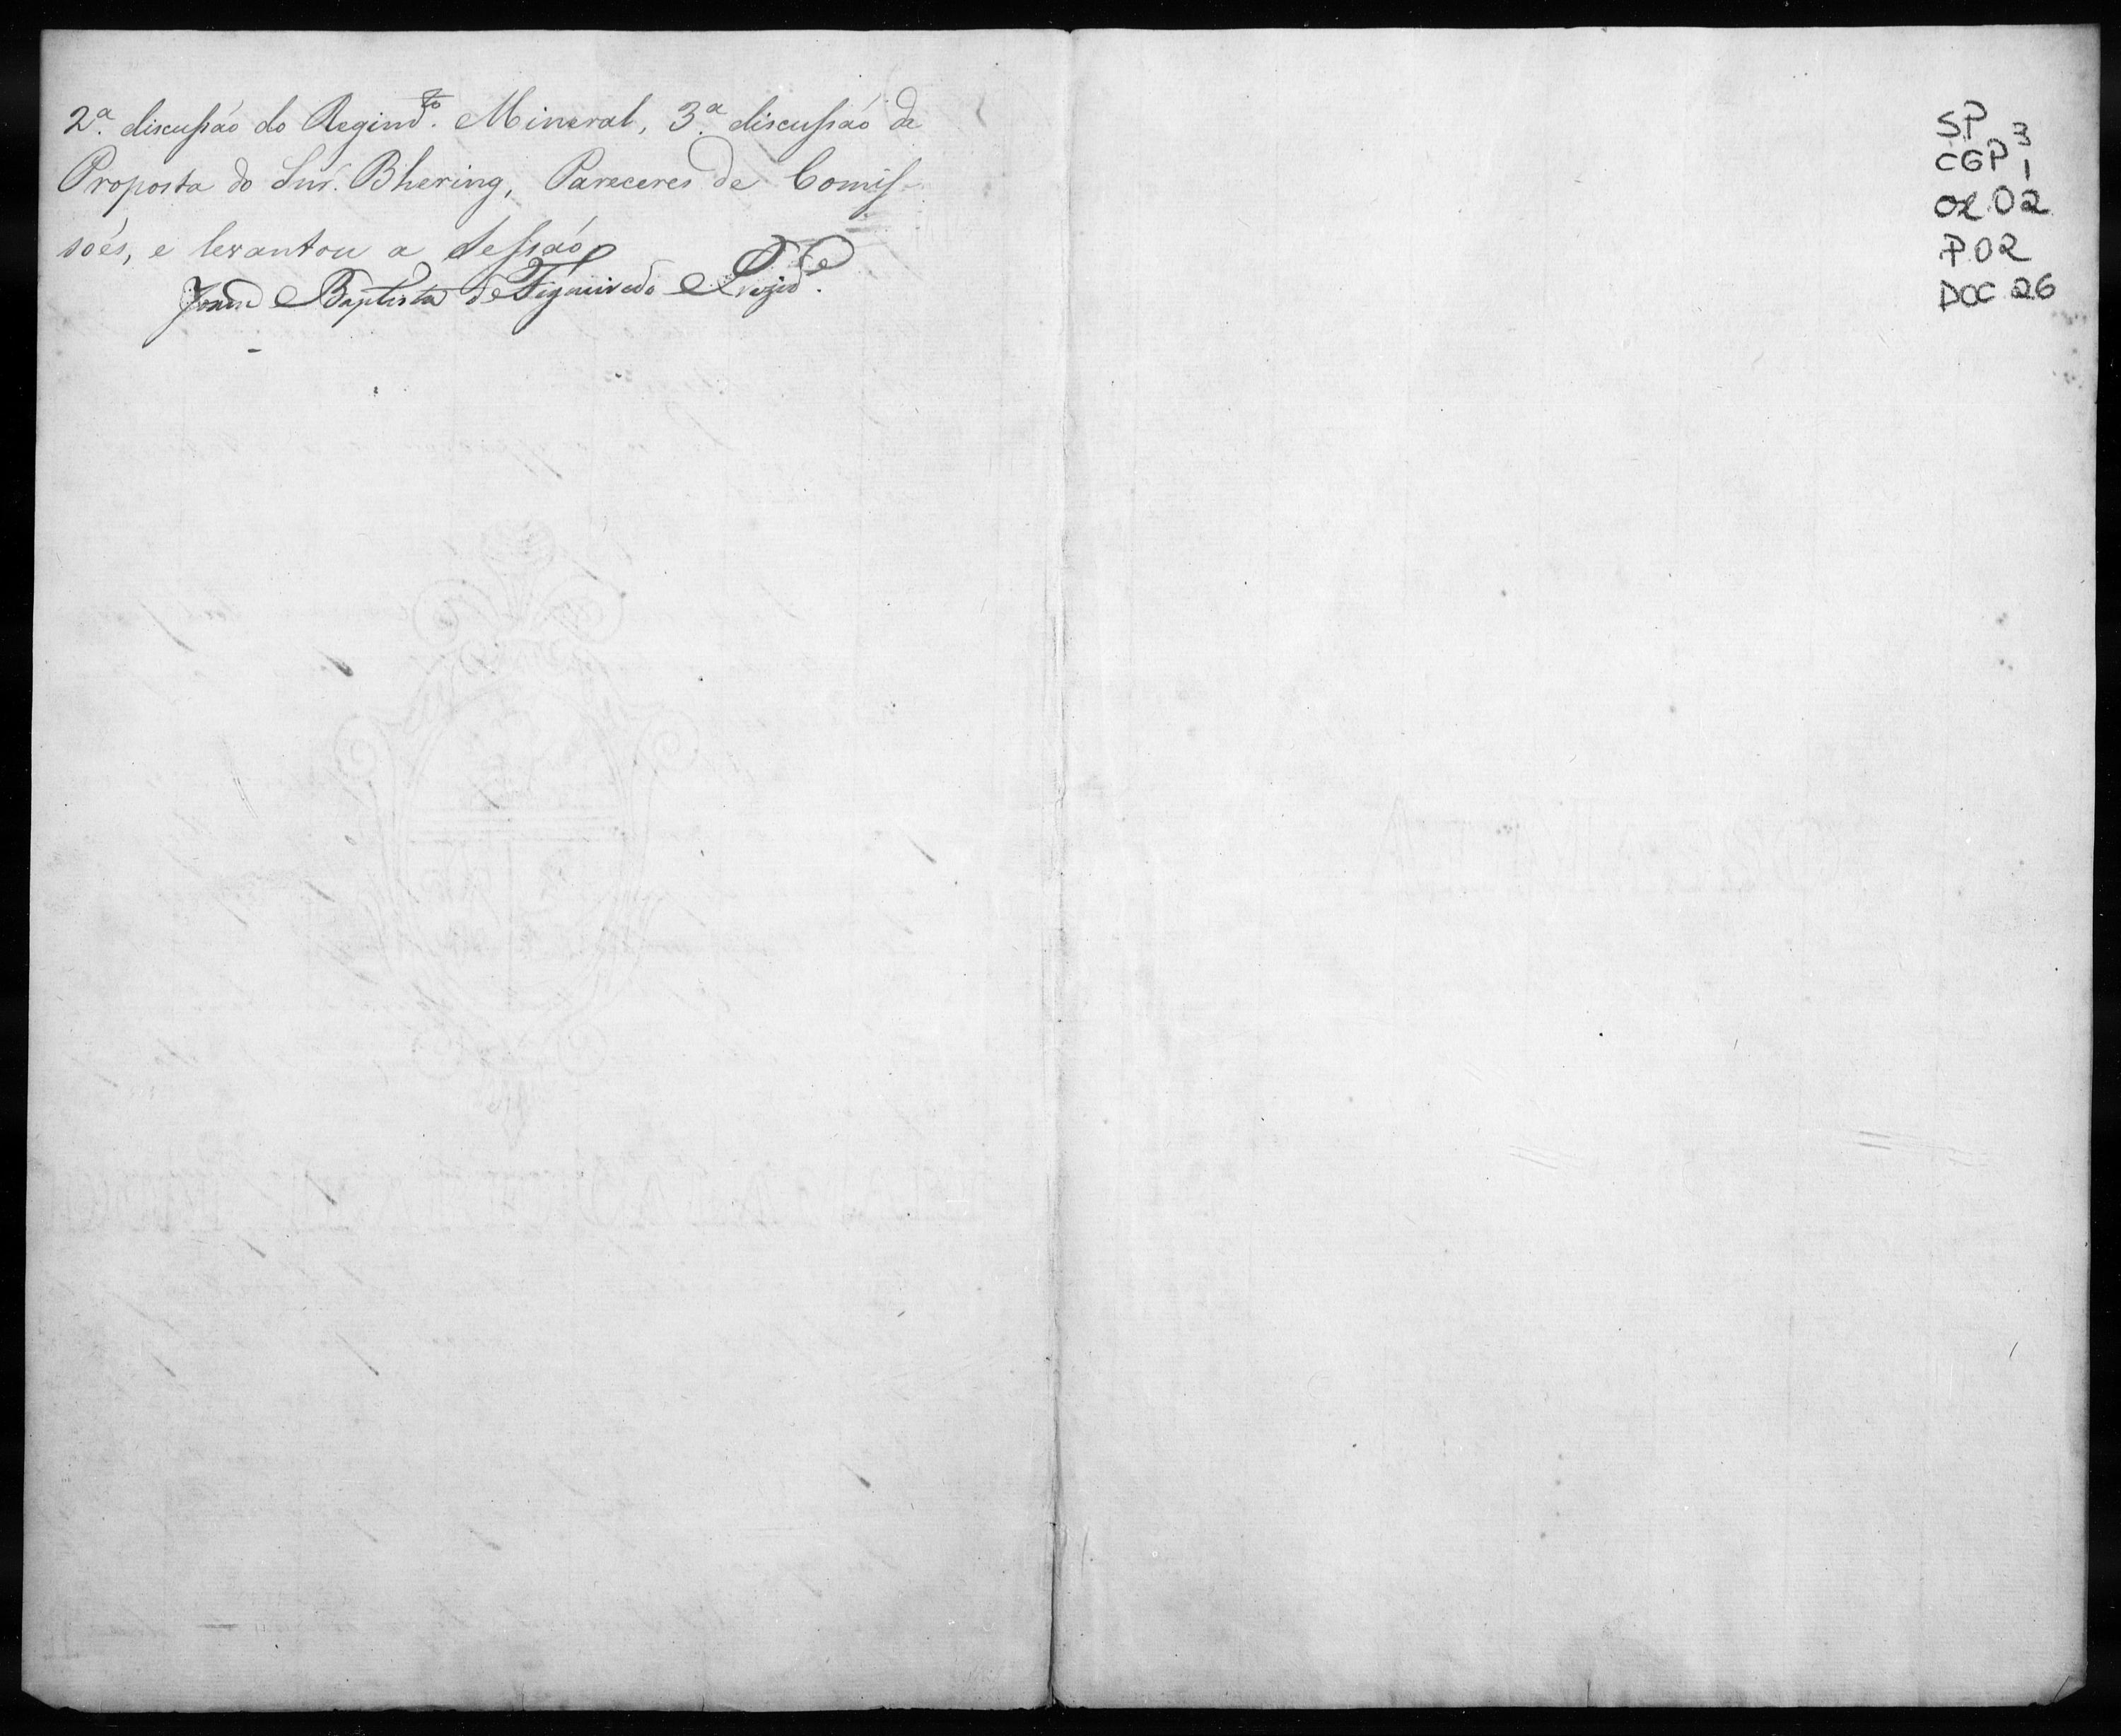 2.ª discussão do Regim.to Mineral, 3.ª discussão da
Proposta do Snr. Bhering, Pareceres de Comis-
sões, e levantou a Sessão
Baptista de Figueiredo Prezid.e
SP
CGP 3
1
02.02
P02
DOC 26